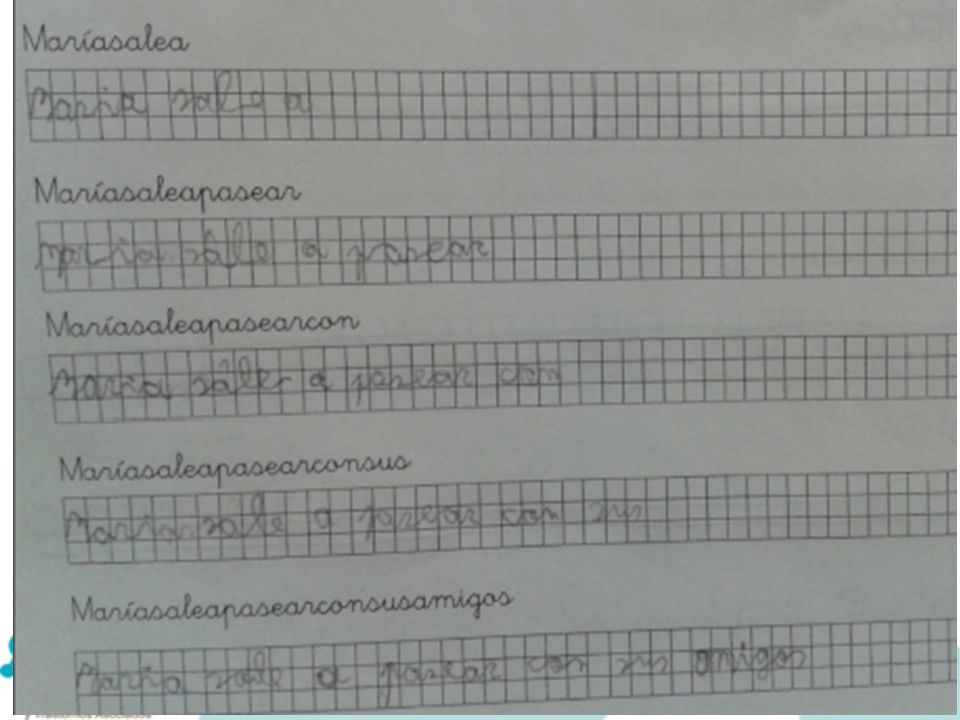 Maríasalea
Maria sale a
Maríasaleapasear
Maria sale a pasear
Maríasaleapasearcon
Maria sale a pasear con
Maríasaleapasearconsus
Maria sale a pasear con sus
Maríasaleapasearconsusamigos
Maria sale a pasear con sus amigos